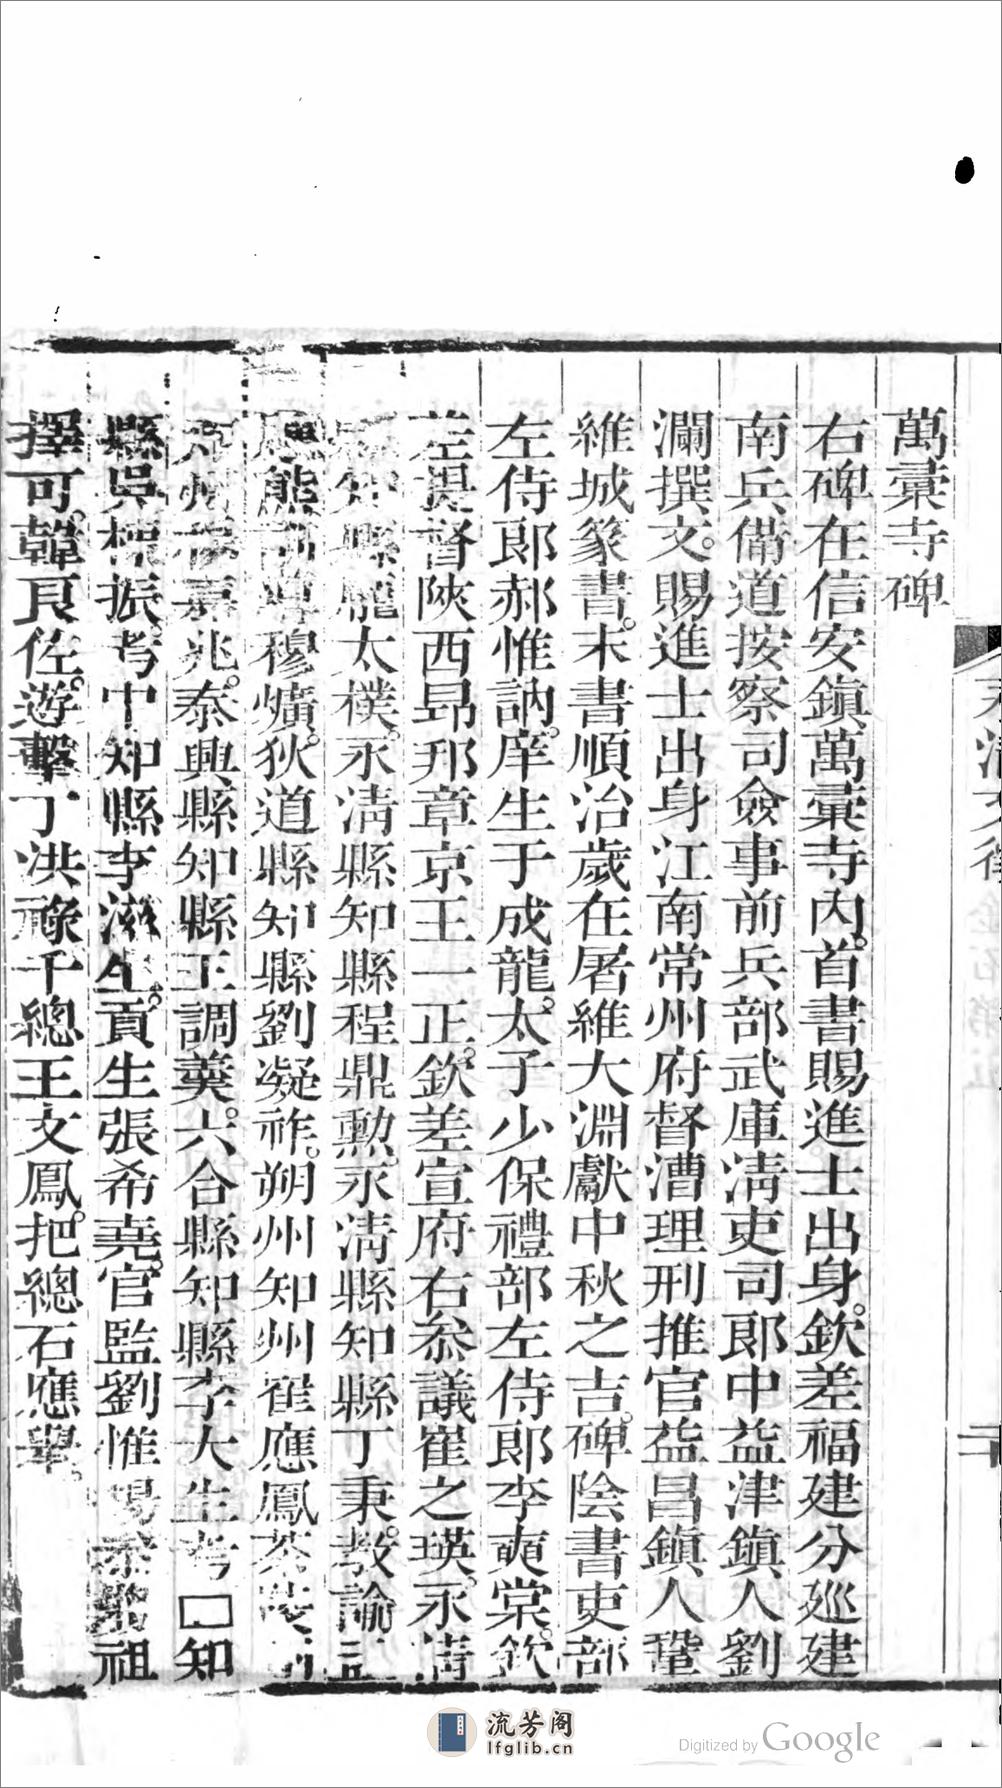 萬彙寺碑
右碑在信安鎮萬彙寺內。首書賜進士出身。欽差福建分巡建
南兵備道按察司僉事前兵部武庫清吏司郎中益津鎮人劉
瀾撰文。賜進士出身江南常州府督漕理刑推官益昌鎮人鞏
維城篆書。末書順治歲在屠維大淵獻中秋之吉。碑陰書吏部
左侍郎郝惟訥。庠生于成龍。太子少保禮部左侍郎李奭棠。欽
差提督陝西昂邦章京王一正。欽差宣府右叅議崔之瑛。永清
知縣龎太樸。永清縣知縣程鼎勲。永清縣知縣丁秉。教諭
熊 穆爌。狄道縣知縣劉凝祚。朔州知州崔應鳳
州 嘉兆。泰興縣知縣王調羹。六合縣知縣李大生考□知
縣吳標振。考中知縣李滋生。貢生張希堯。官監劉惟 祖
擇可。韓良佐。遊擊丁洪祿千總王文鳳。把總石應舉。
二十
流芳阁
lfglib.cn
Digitized by Google